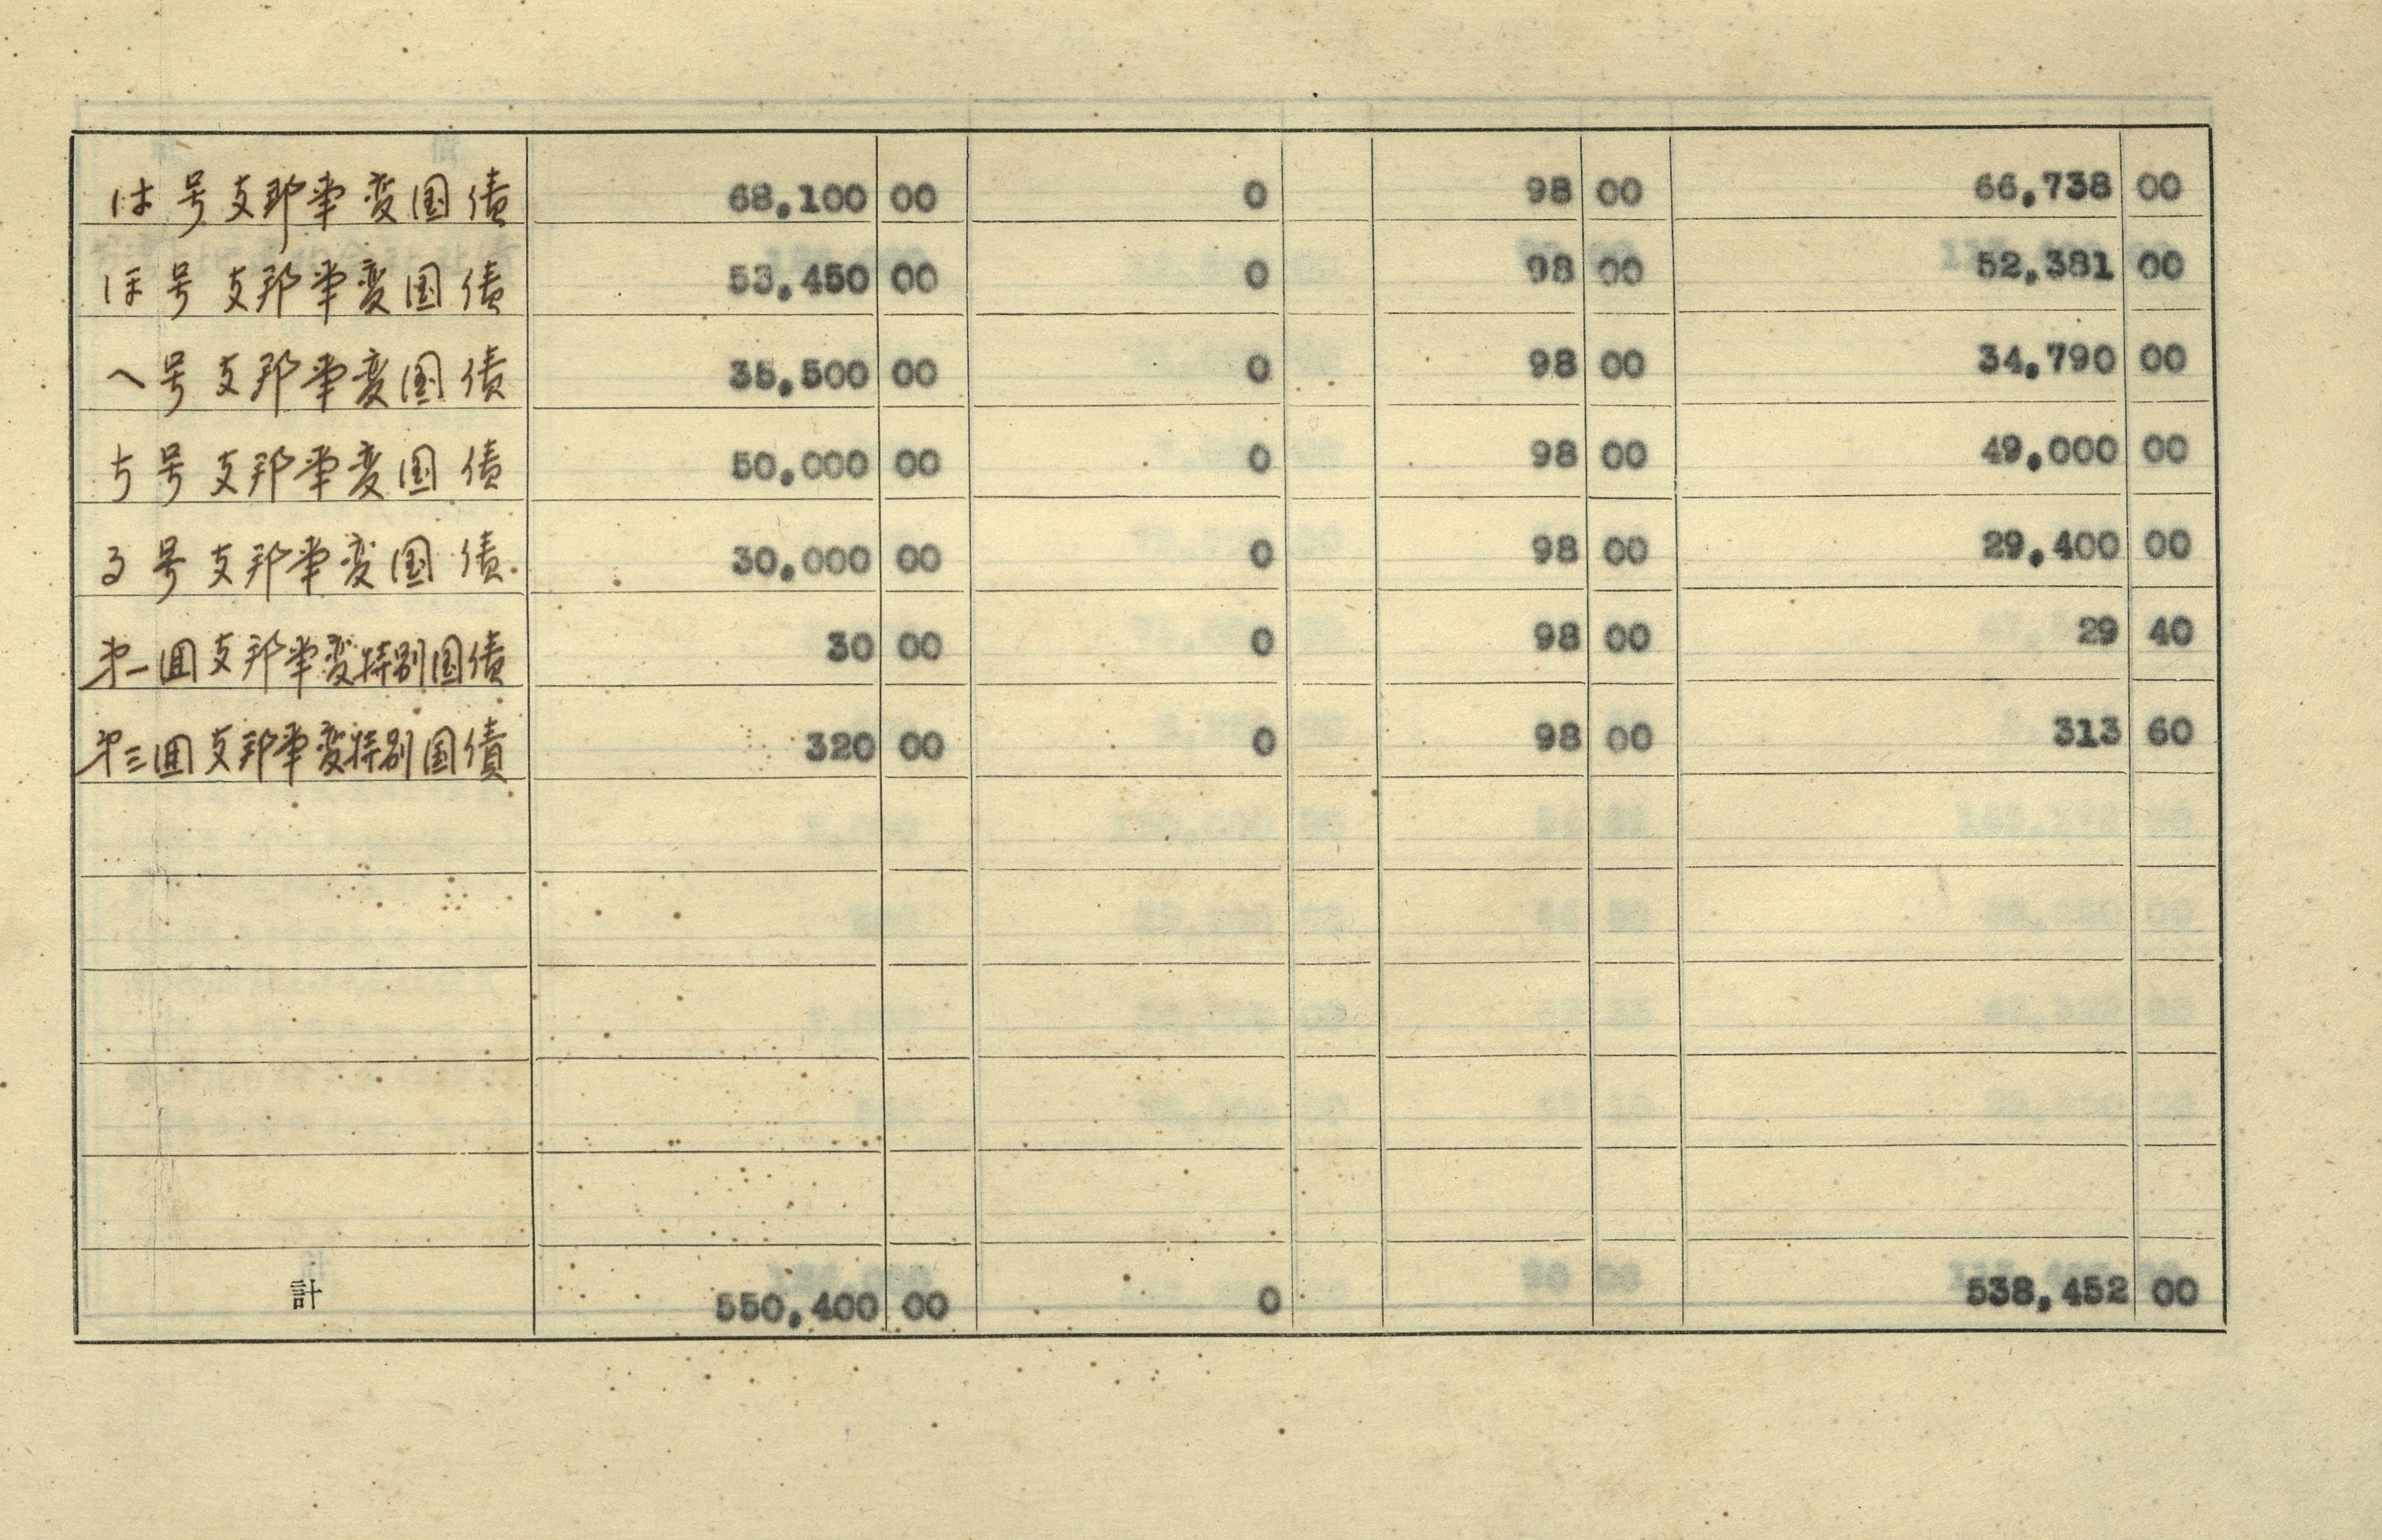 は号支那事変国債 68,100 00 0 98 00 66,738 00
ほ号支那事変国債 53,450 00 0 98 00 52,381 00
へ号支那事変国債 35,500 00 0 98 00 34,790 00
ち号支那事変国債 50,000 00 0 98 00 49,000 00
る号支那事変国債 30,000 00 0 98 00 29,400 00
第一回支那事変特別国債 30 00 0 98 00 29 40
第三回支那事変特別国債 320 00 0 98 00 313 60
計 550,400 00 0 538,452 00